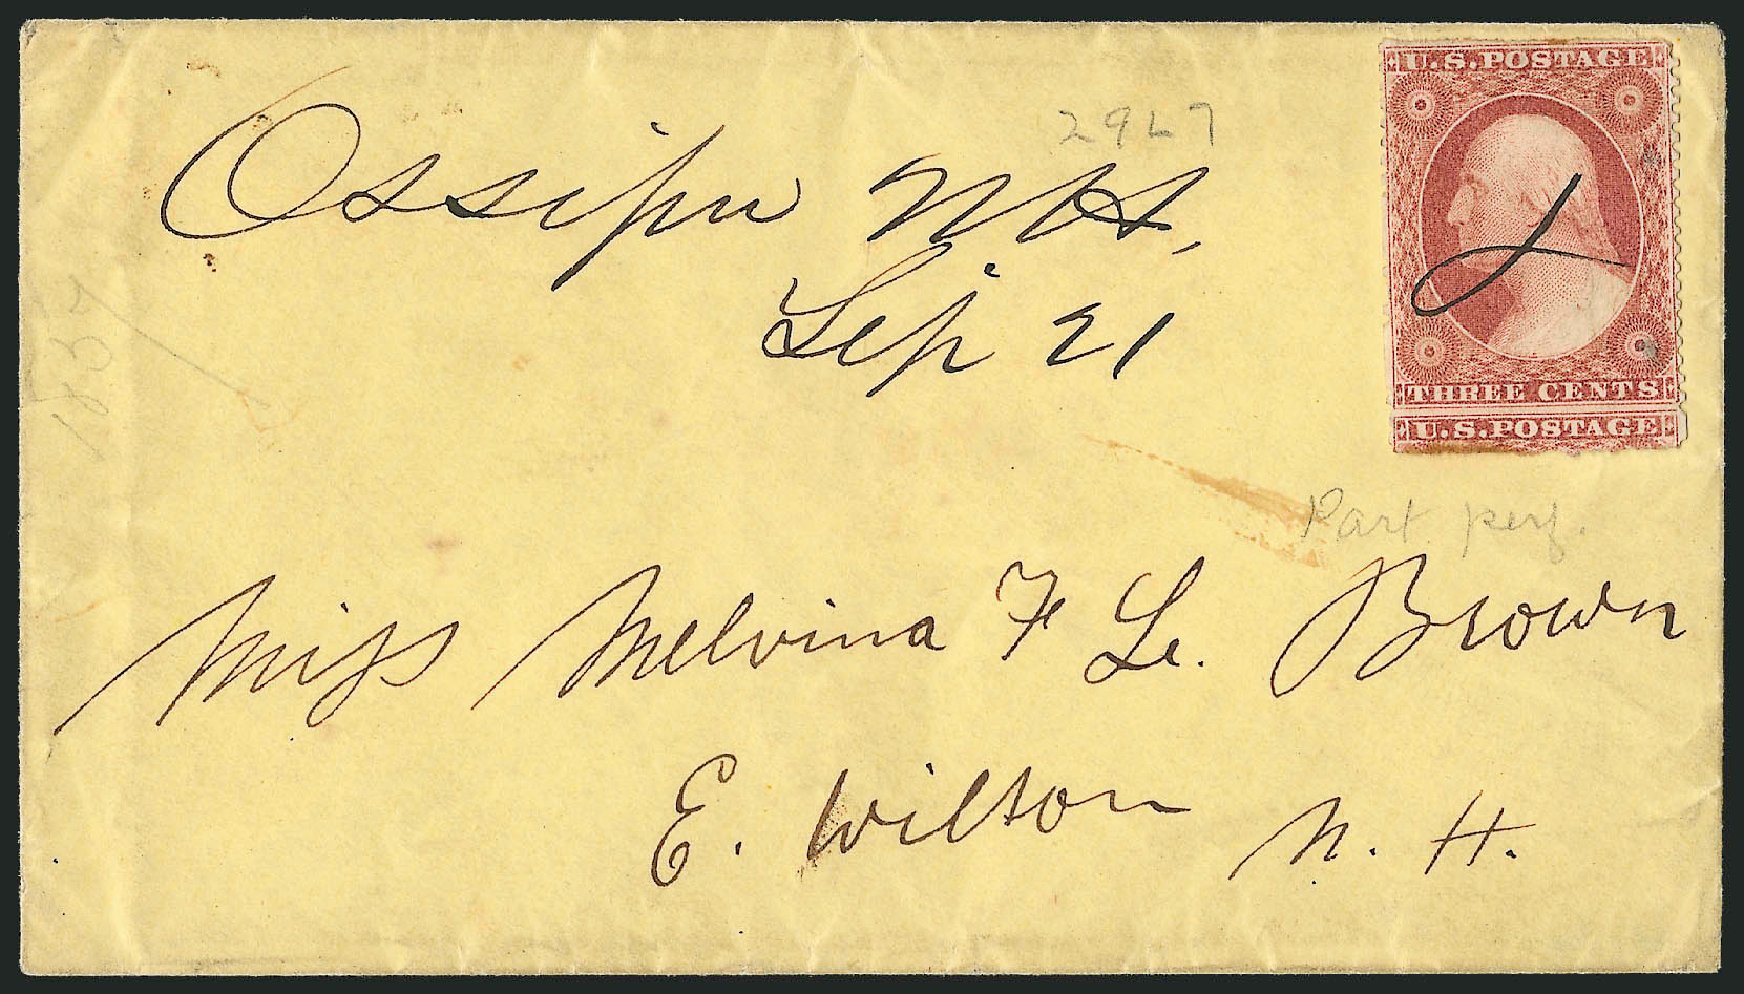 U.S. POSTAGE
29L7
Ossipee N H,
Sep 21
1857
THREE CENTS
U.S. POSTAGE
Part perf.
Miss Melvina F Le. Brown
E. Wilton N. H.